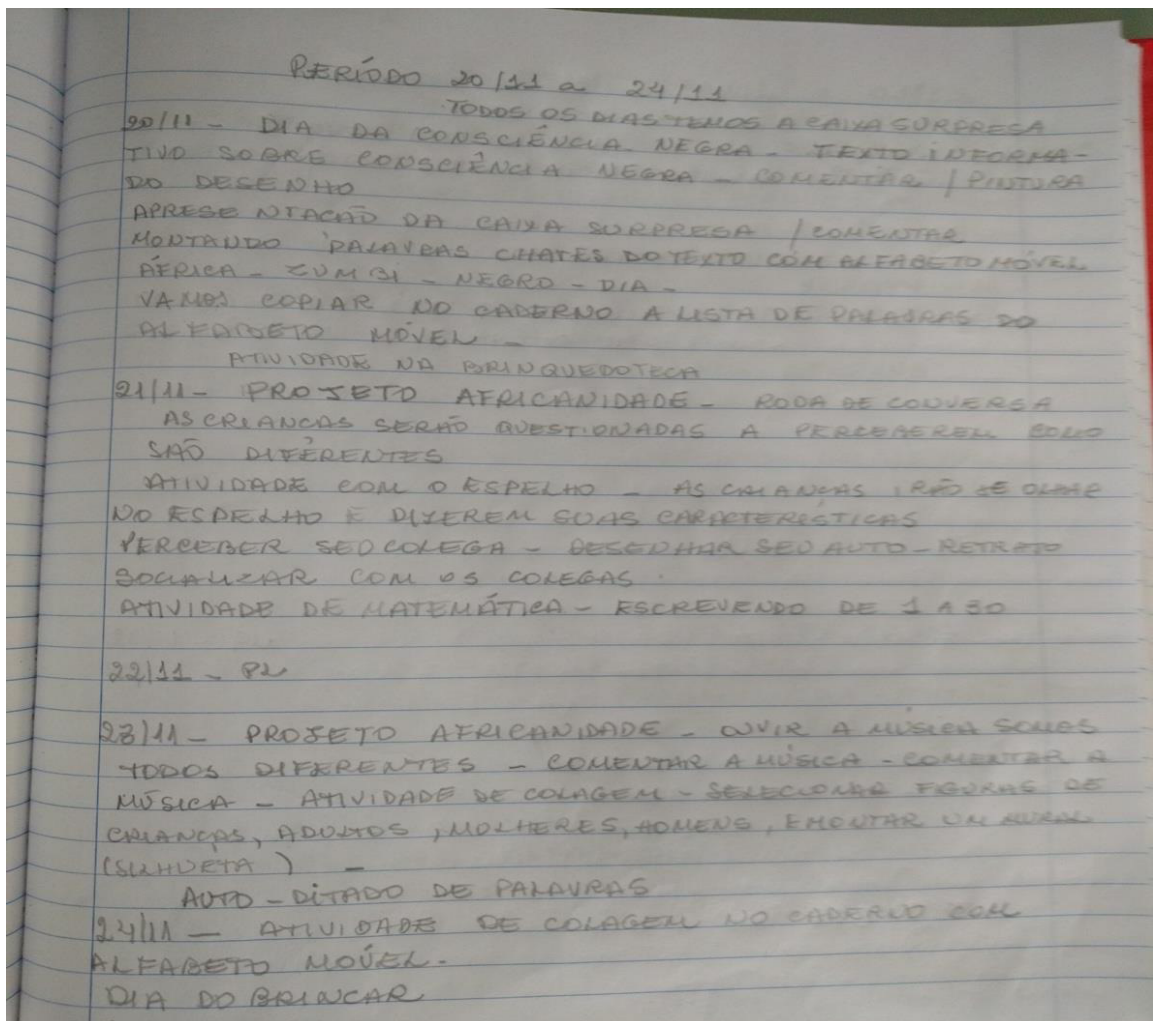 PERÍODO 20/11 a 24/11
TODOS OS DIAS TEMOS A CAIXA SURPRESA
20/11 - DIA DA CONSCIÊNCIA NEGRA - TEXTO INFORMA-
TIVO SOBRE CONSCIÊNCIA NEGRA - COMENTAR / PINTURA
DO DESENHO
APRESENTAÇÃO DA CAIXA SURPRESA / COMENTAR
MONTANDO PALAVRAS CHAVES DO TEXTO COM ALFABETO MÓVEL
ÁFRICA - ZUMBI - NEGRO - DIA -
VAMOS COPIAR NO CADERNO A LISTA DE PALAVRAS DO
ALFABETO MÓVEL -
ATIVIDADE NA BRINQUEDOTECA
21/11 - PROJETO AFRICANIDADE - RODA DE CONVERSA
AS CRIANCAS SERÃO QUESTIONADAS A PERCEBEREM COMO
SÃO DIFERENTES
ATIVIDADE COM O ESPELHO - AS CRIANÇAS IRÃO SE OLHAR
NO ESPELHO E DIZEREM SUAS CARACTERÍSTICAS
PERCEBER SEU COLEGA - DESENHAR SEU AUTO-RETRATO
SOCIALIZAR COM OS COLEGAS.
ATIVIDADE DE MATEMÁTICA - ESCREVENDO DE 1 A 30
22/11 - PL
23/11 - PROJETO AFRICANIDADE - OUVIR A MÚSICA SOMOS
TODOS DIFERENTES - COMENTAR A MÚSICA - COMENTAR A
MÚSICA - ATIVIDADE DE COLAGEM - SELECIONAR FIGURAS DE
CRIANÇAS, ADULTOS, MULHERES, HOMENS, E MONTAR UM MURAL
(SILHUETA) -
AUTO-DITADO DE PALAVRAS
24/11 - ATIVIDADE DE COLAGEM NO CADERNO COM
ALFABETO MÓVEL.
DIA DO BRINCAR